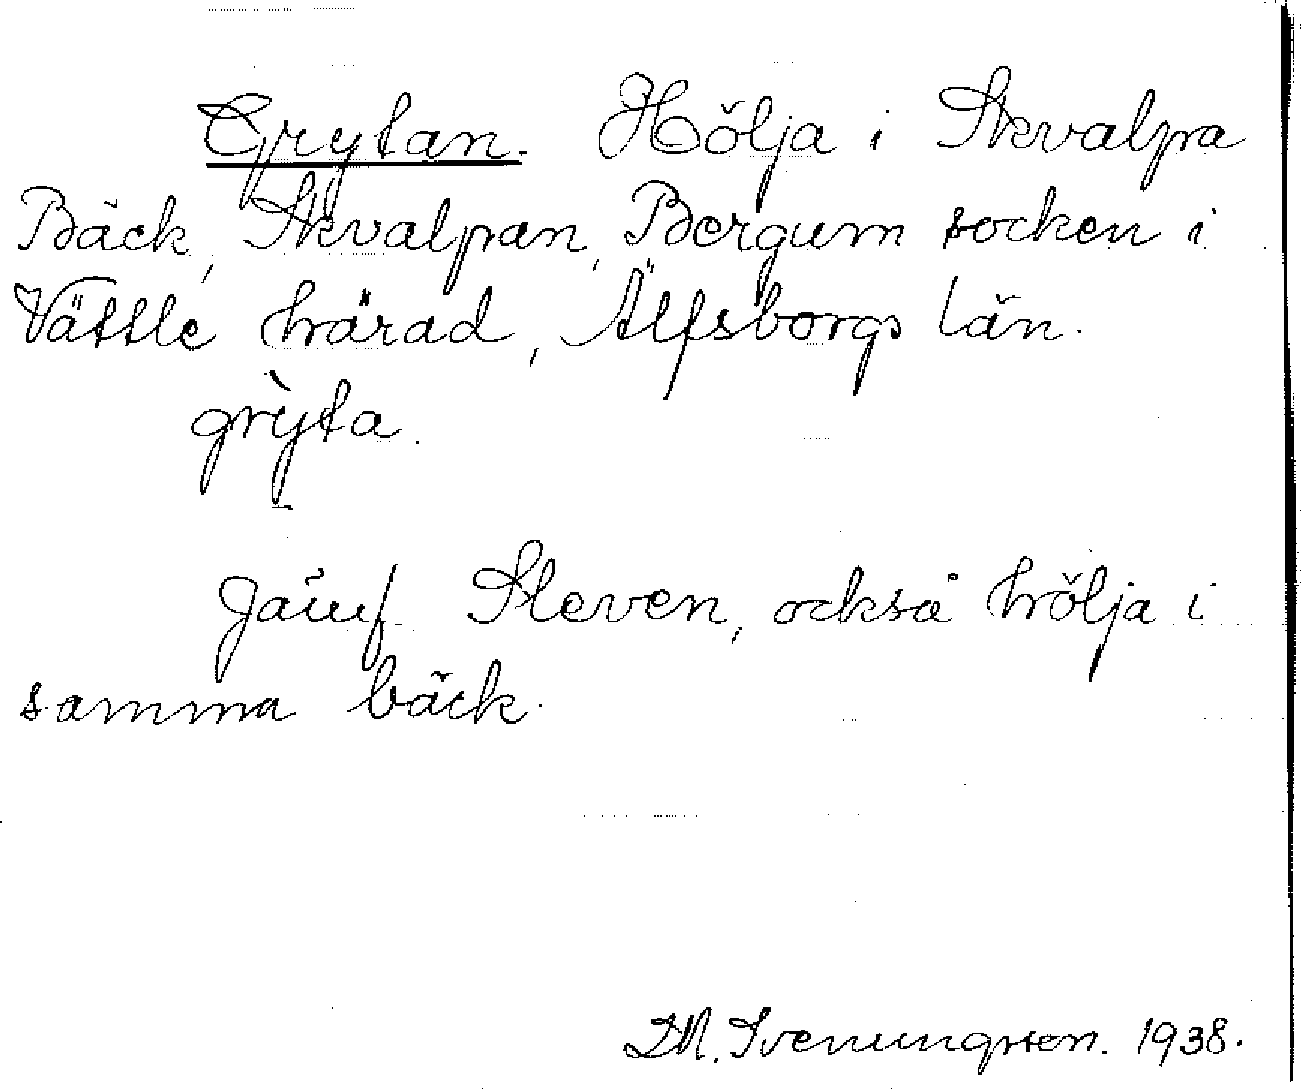 Grytan. Hölja i Skvalpa
Bäck, Skvalpan, Bergum socken i
Vättle härad, Älfsborgs län.
grỳta.
Jämf. Sleven, också hölja i
samma bäck.
D.M. Svenungsson. 1938.